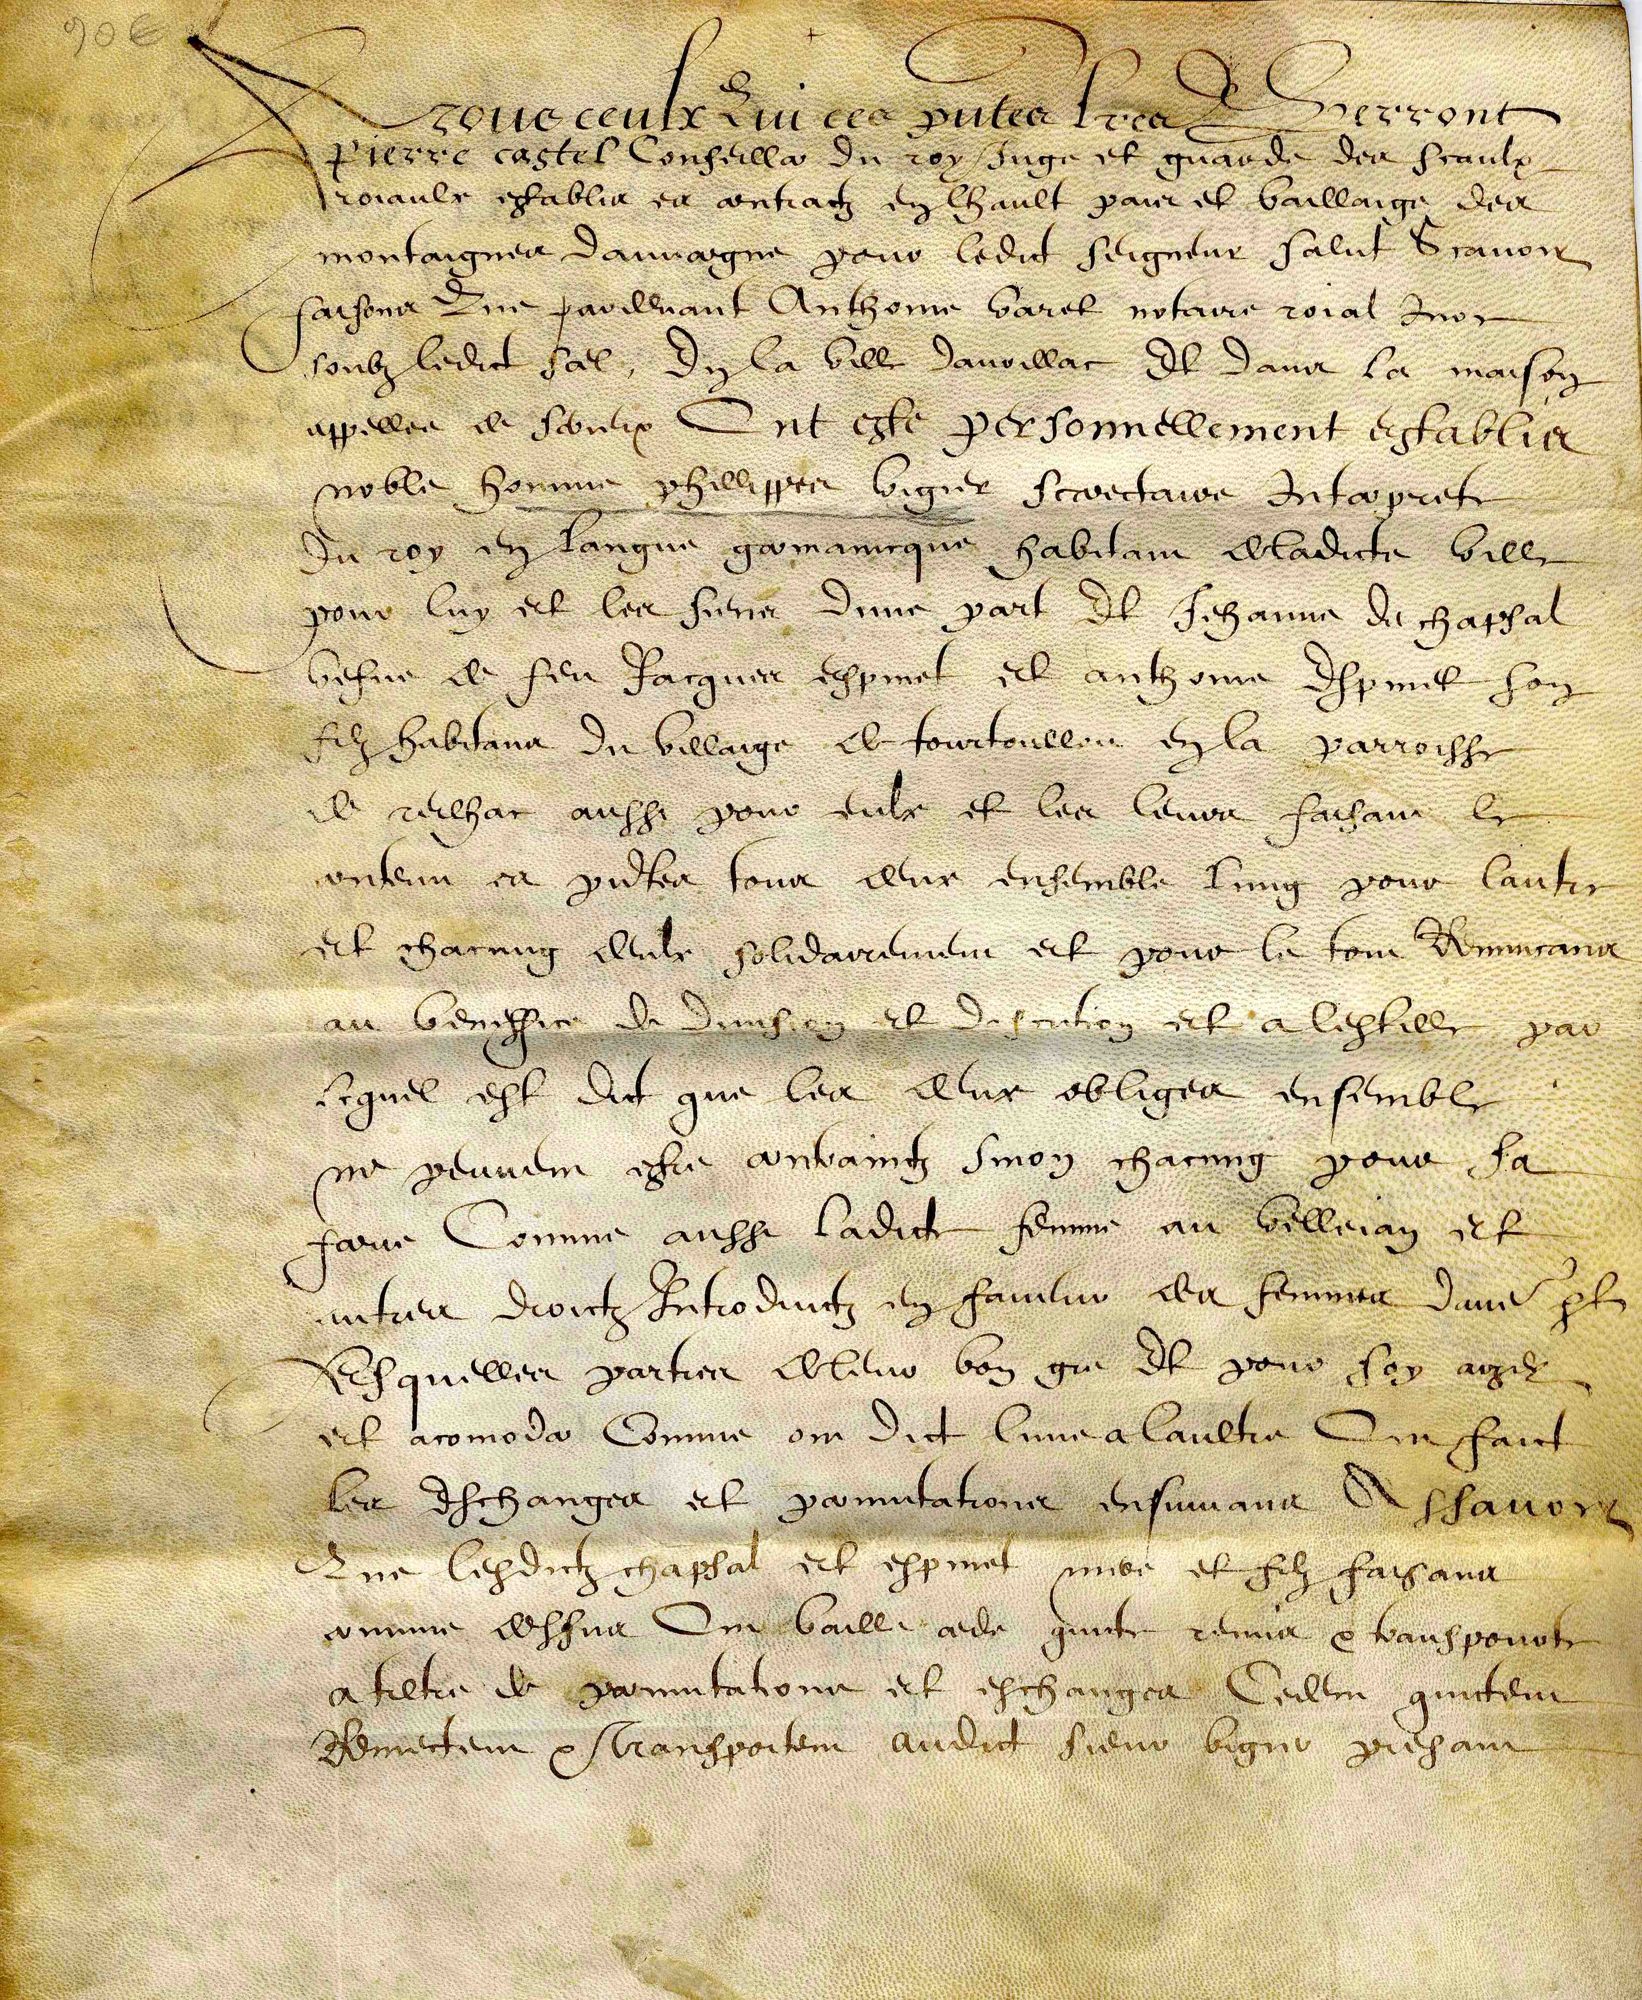 90 €
A tous ceulx Qui ces pntes lres Verront
Pierre castel Conseiller du roy Juge et guarde des sceaulx
roiaulx establis es contractz en lhault pais et bailliaige des
montaignes dauvergne pour ledict seigneur salut Scavoir
faisons Que pardevant Anthoine baret notaire roial Jure
soubz ledict scel, En la ville daurillac Et dans la maison
appellee de Ont este personnellement establis
noble homme phillippes vigier secretaire Interprete
du roy en langue germanicque habitant de ladicte ville
pour luy et les siens dune part Et Jehanne de chapsal
vefue de feu Jacques espinet et anthoine Espinet son
filz habitans du villaige de tourtoullou en la parroisse
de reilhac aussi pour eulx et les leurs faisant le
contenu es pntes tous deux ensemble lung pour lautre
et chacung deulx solidairement et pour le tout Renuncans
au beneffice de division et discution et a lepistille par
lequel est dict que les deux obliges ensemble
ne peuvent estre contrainctz sinon chacung pour sa
part Comme aussi ladicte femme au velleian et
autres droictz Introduictz en faveur des femmes dune pt
Lesquelles parties de leur bon gre Et pour soy aizer
et acomoder Comme ont dict lune a laultre Ont faict
les Eschanges et permutations ensuivans Assavoir
Que lesdictz chapsal et espinet mere et filz faisans
comme dessus Ont baille cede quicte remis & transporte
a tiltre de permutations et eschanges Cedent quictent
Remectent & transportent audict sieur vigier presant